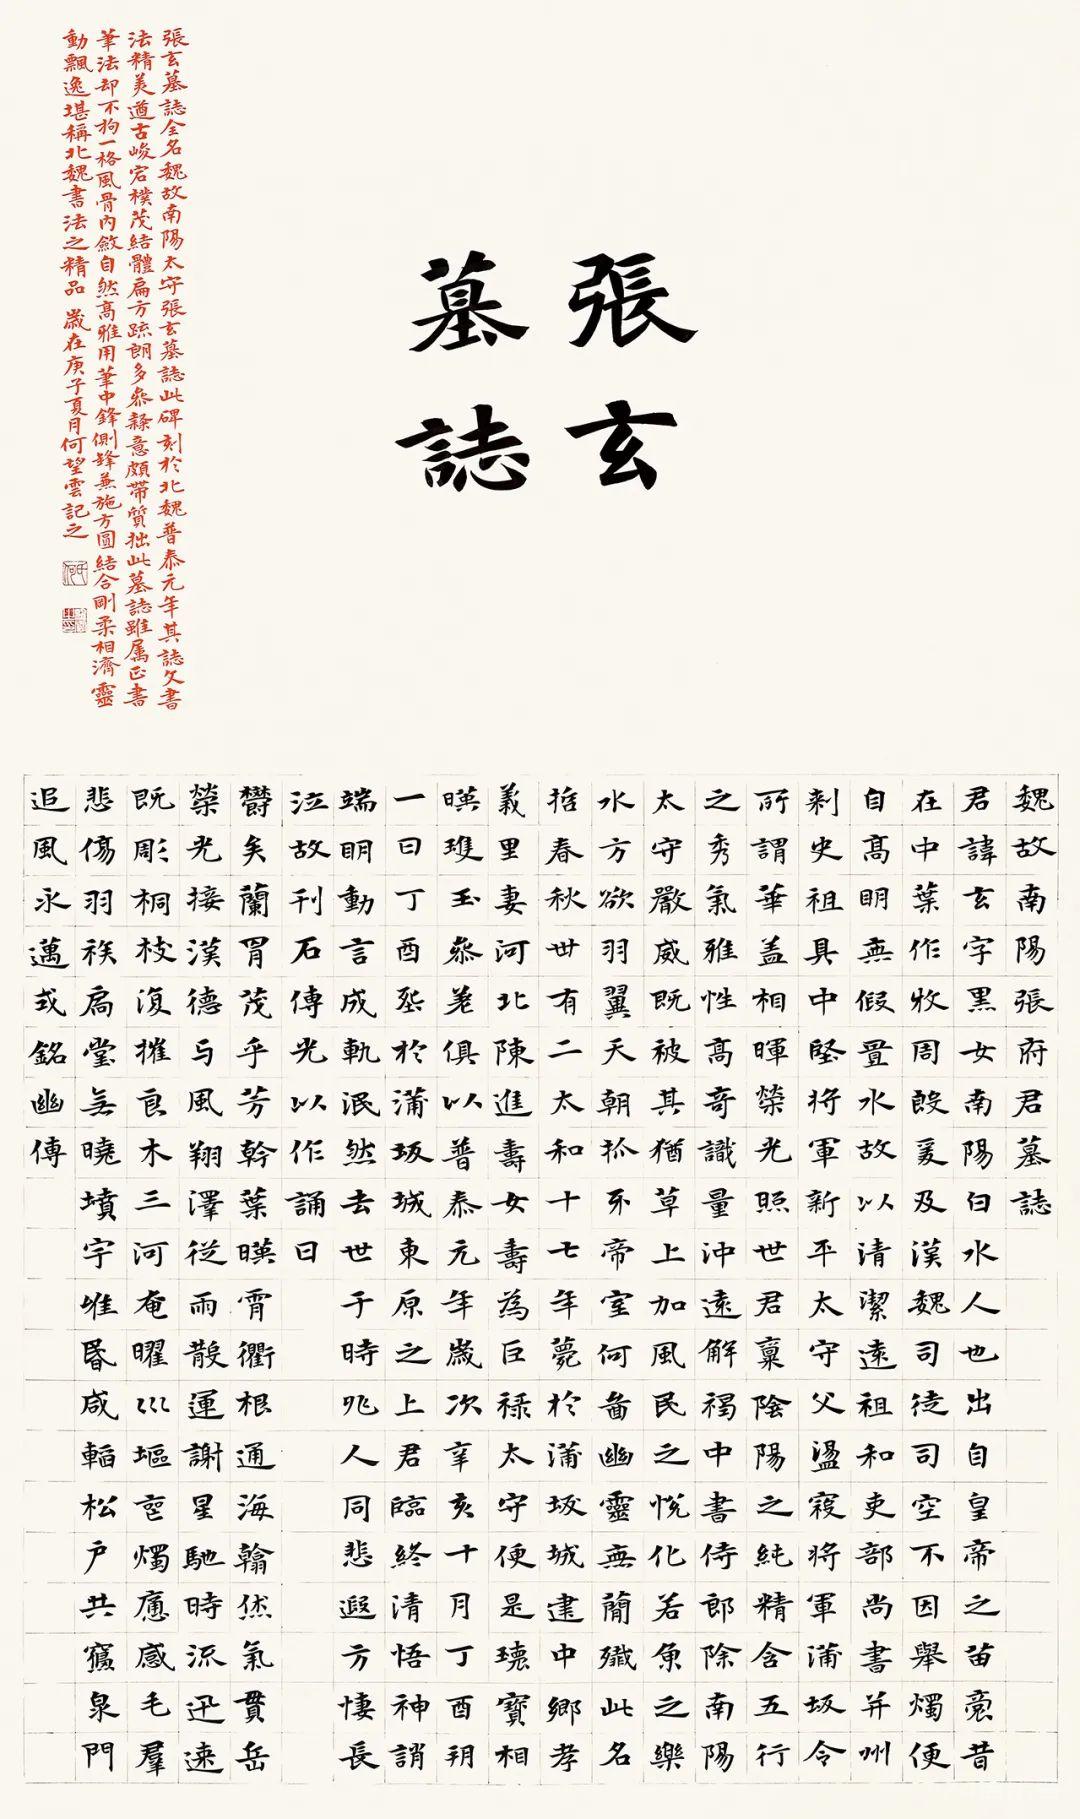 張玄
墓誌
張玄墓誌全名魏故南陽太守張玄墓誌此碑刻於北魏普泰元年其誌文書
法精美遒古峻宕樸茂結體扁方疏朗多叅隸意頗帶質拙此墓誌雖属正書
筆法却不拘一格風骨內斂自然高雅用筆中鋒側鋒兼施方圓結合剛柔相濟靈
動飄逸堪稱北魏書法之精品 歲在庚子夏月何望雲記之
魏故南陽張府君墓誌
君諱玄字黑女南陽白水人也出自皇帝之苗裔昔
在中葉作牧周殷爰及漢魏司徒司空不因舉燭便
自高明無假置水故以清潔遠祖和吏部尚書并州
刺史祖具中堅將軍新平太守父盪寇將軍蒲坂令
所謂華盖相暉榮光照世君稟陰陽之純精含五行
之秀氣雅性高奇識量沖遠解褐中書侍郎除南陽
太守嚴威既被其猶草上加風民之悅化若魚之樂
水方欲羽翼天朝抓牙帝室何啚幽靈無簡殲此名
哲春秋卅有二太和十七年薨於蒲坂城建中鄉孝
義里妻河北陳進壽女壽為巨祿太守便是瓌寶相
暎瓊玉叅差俱以普泰元年歲次辛亥十月丁酉朔
一日丁酉丞於蒲坂城東原之上君臨終清悟神誚
端明動言成軌泯然去世于時兆人同悲遐方悽長
泣故刊石傳光以作誦曰
欝矣蘭冑茂乎芳幹葉暎霄衢根通海翰恷氣貫岳
榮光接漢德与風翔澤從雨散運謝星馳時流迅速
既彫桐枝復摧良木三河奄曜巛堰䆠燭痝感毛羣
悲傷羽族扃堂無曉墳宇唯昏咸韜松戶共寱泉門
追風永邁式銘幽傳